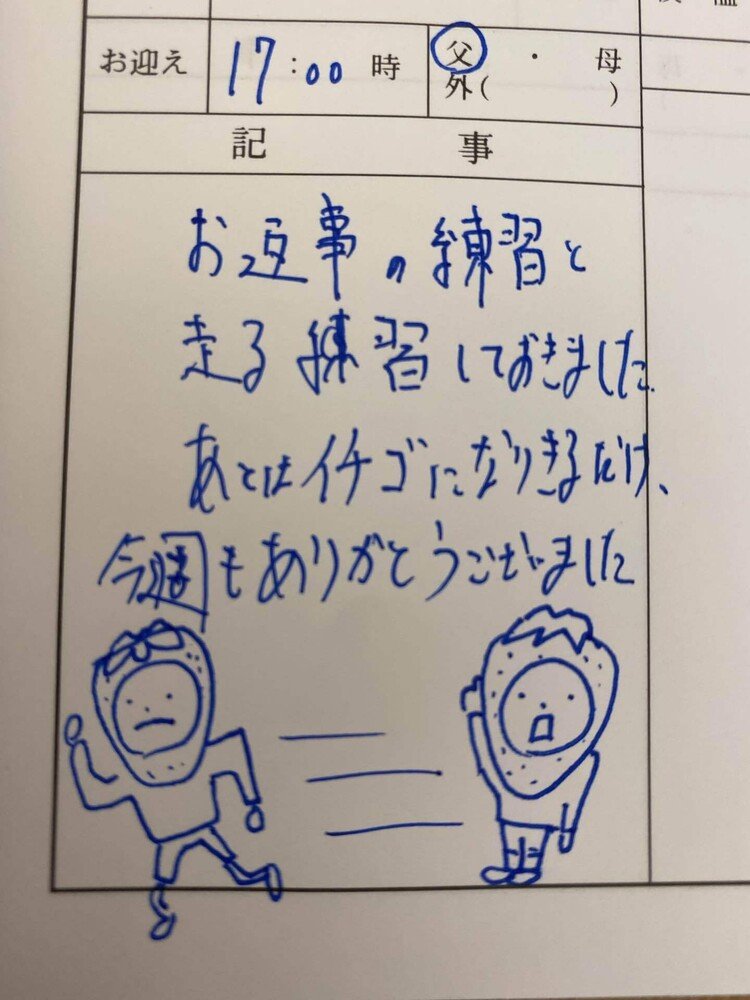 お迎え 17:00 時 父 ・ 母
外( )
記 事
お返事の練習と
走る練習しておきました。
あとはイチゴになりきるだけ、
今週もありがとうございました